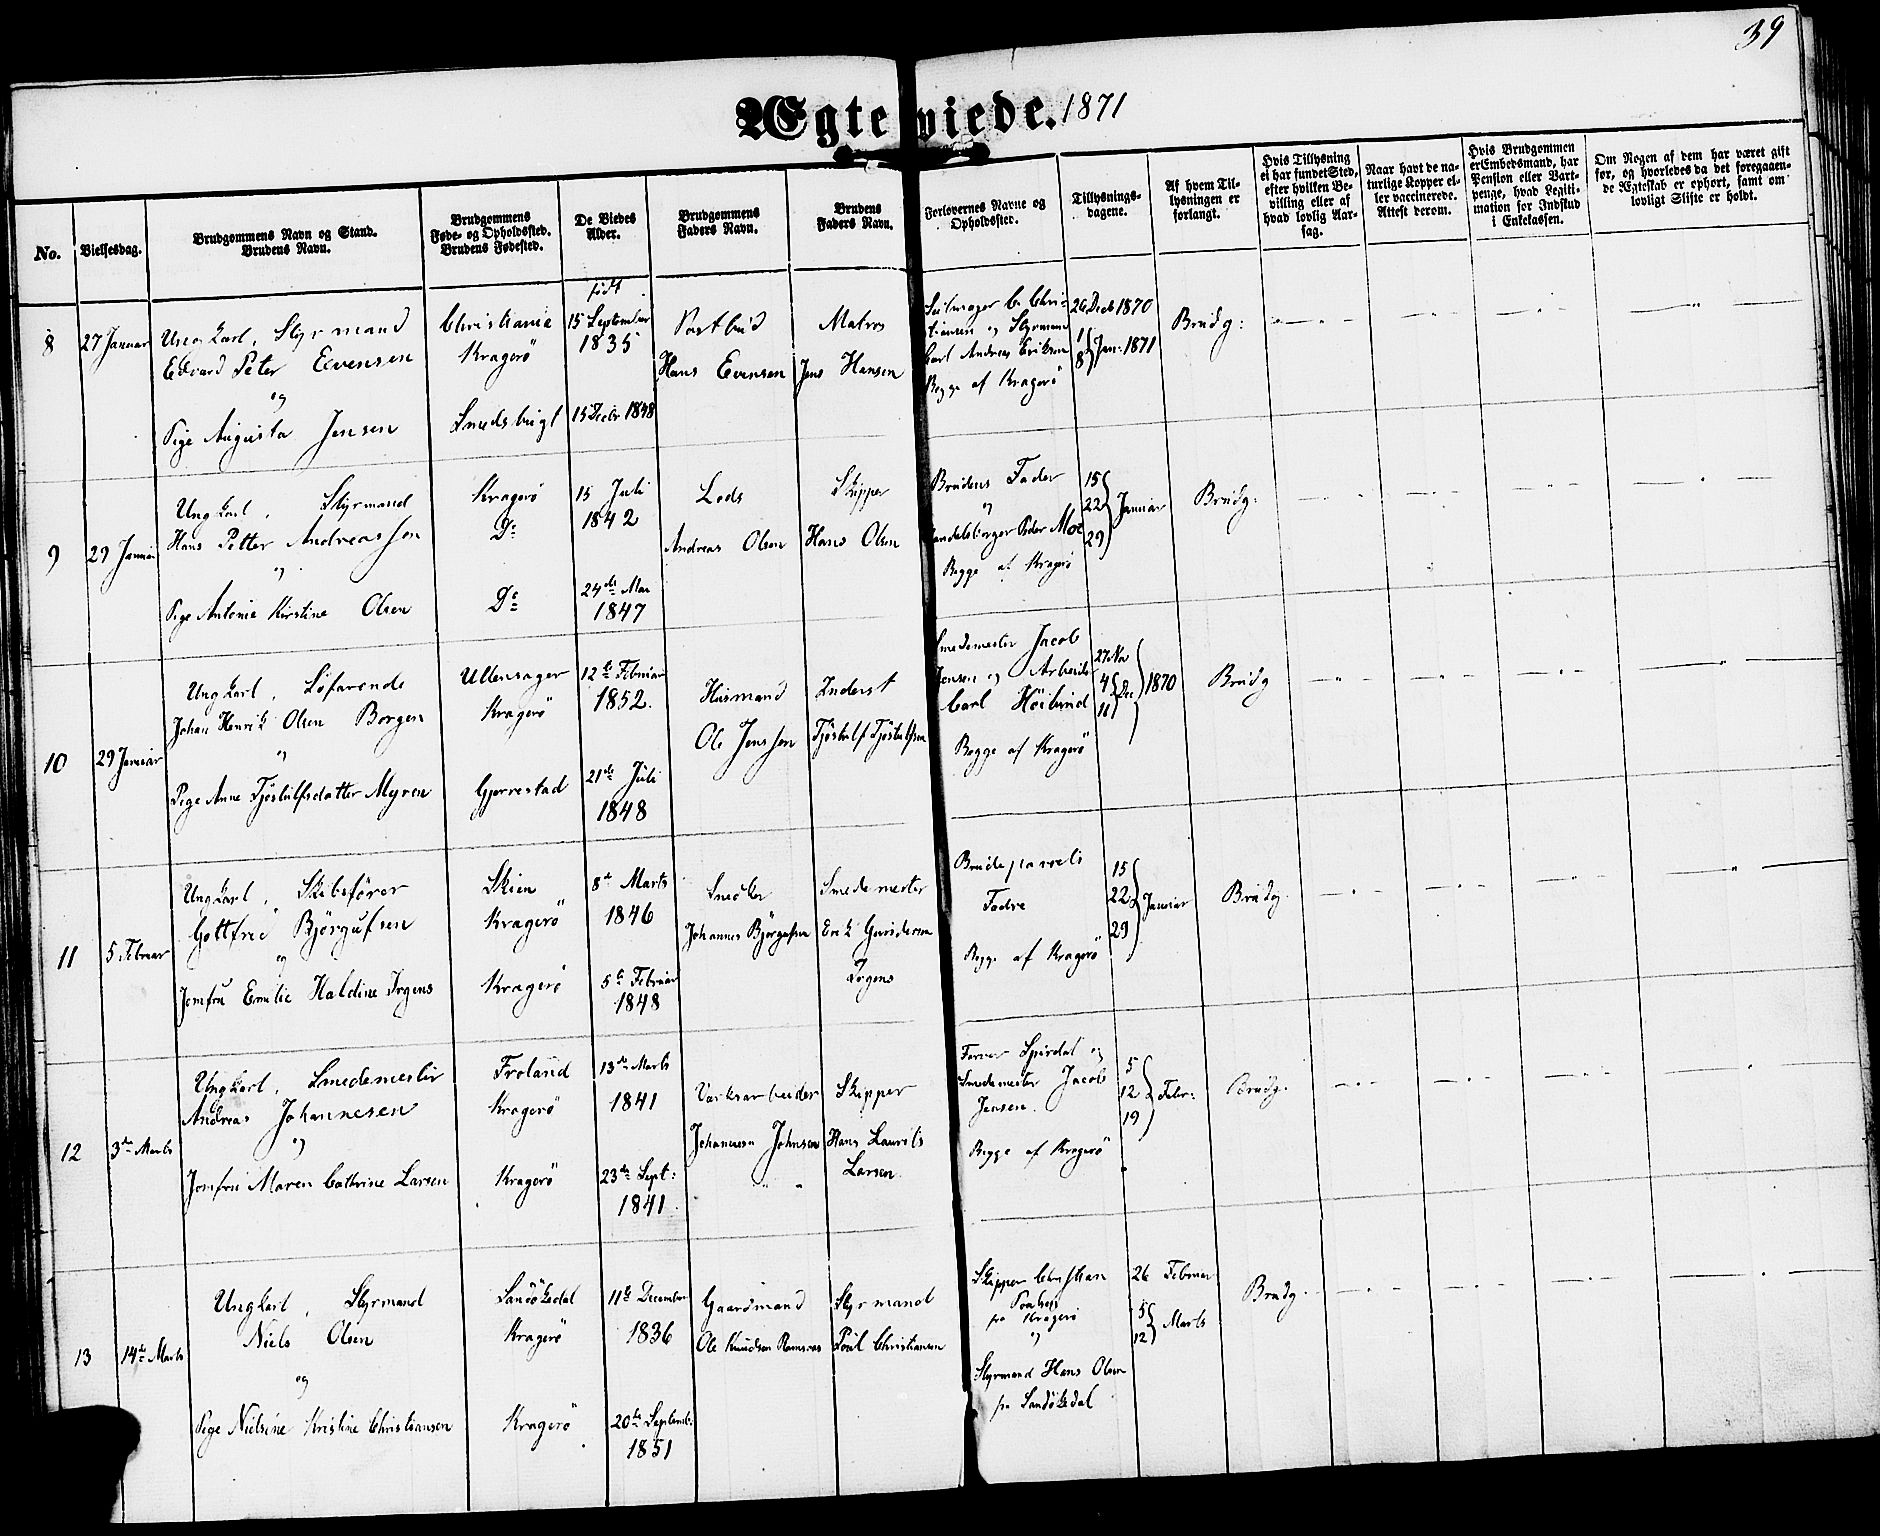 39
Ægteviede. 1871
No.
Vielsesdag.
Brudgommens Navn og Stand.
Brudens Navn.
Brudgommens
Føde- og Opholdssted.
Brudens Fødested.
De Viedes
Alder.
Brudgommens
Faders Navn.
Brudens
Faders Navn.
Forlovernes Navne og
Opholdssted.
Tillysnings-
dagene.
Af hvem Til-
lysningen er
forlangt.
Hvis Tillysning
ei har fundet Sted,
efter hvilken Be-
villing eller af
hvad lovlig Aar-
sag.
Naar havt de na-
turlige Kopper el-
ler vaccinerede.
Attest derom.
Hvis Brudgommen
er Embedsmand, har
Pension eller Vart-
penge, hvad Legiti-
mation for Indskud
i Enkekassen.
Om Nogen af dem har været gift
før, og hvorledes da det foregaaen-
de Ægteskab er ophørt, samt om
lovligt Skifte er holdt.
8
27 Januar
Ungkarl, Styrmand
Edvard Peter Evensen
og
Pige Augusta Jensen
Christiania
Kragerö
født
15 September
1835
15 Decbr 1848
Postbud
Hans Evensen
Matros
Jens Hansen
Seilmager C. Chri-
stiansen og Styrmand
Carl Andreas Eriksen
Begge af Kragerö
26 Decb 1870
1
8 } Jan: 1871
Brudg:
9
29 Januar
Ungkarl, Styrmand
Hans Petter Andreassen
og
Pige Antonie Kirstine Olsen
Kragerö
Do
Do
15 Juli
1842
24de Mai
1847
Lods
Andreas Olsen
Skipper
Hans Olsen
Brudens Fader
og
Handelsborger Peder Moe
Begge af Kragerö
15
22 } Januar
29
Brudg:
10
29 Januar
Ungkarl, Söfarende
Johan Henrik Olsen Borgen
og
Pige Anne Tjöstulfsdatter Myren
Ullensager
Kragerö
Gjerrestad
12te Februar
1852.
21de Juli
1848
Husmand
Ole Jenssen
Inderst
Tjöstulf Tjöstulfsen
Smedemester Jacob
Jensen og Arbeids
Carl Höibund
Begge af Kragerö
27 Nov
4 } Dec } 1870
11
Brudg
11
5 Februar
Ungkarl, Skibsförer
Gottfried Björgufsen
og
Jomfru Emilie Haldine Irgens
Skien
Kragerö
Kragerö
8de Marts
1846
5te Februar
1848
Snedker
Johannes Björgufsen
Smedemester
Erik Gundersen
Irgens
Brudeparrets
Fædre
Begge af Kragerö
15
22 } Januar
29
Brudg.
12
3de Marts
Ungkarl, Smedemester
Andreas Johannesen
og
Jomfru Maren Cathrine Larsen
Froland
Kragerö
Kragerö
13de Marts
1841
23de Sept:
1841.
Værksarbeider
Johannesen Johnsen
Skipper
Hans Laurits
Larsen.
Farver Spirdal og
Smedemester Jacob
Jensen.
Begge af Kragerö
5
12 } Febr:
19
Brudg.
13
14de Marts
Ungkarl, Styrmand
Niels Olsen
og
Pige Nielsine Kristine Christiansen
Sandökedal
Kragerö
Kragerö
11te December
1836
20de Septemb:
1851
Gaardmand
Ole Knudsen
Styrmand
Poul Christiansen
Skipper Christian
paa Kragerö
og
Styrmand Hans Olsen
paa Sandökedal
26 Februar
5
12 } Marts
Brudg.